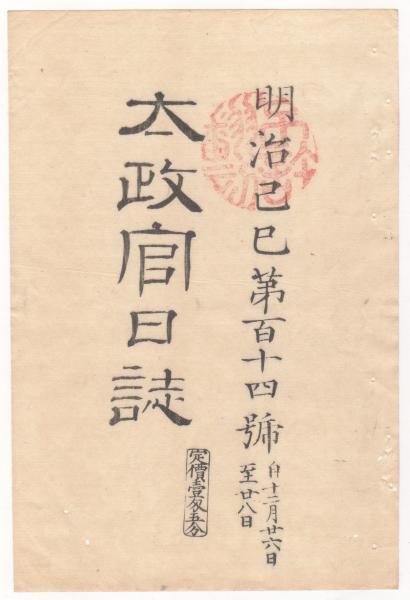 明治己巳第百十四號
自十二月廿六日
至廿八日
太政官日誌
定價壹匁五分